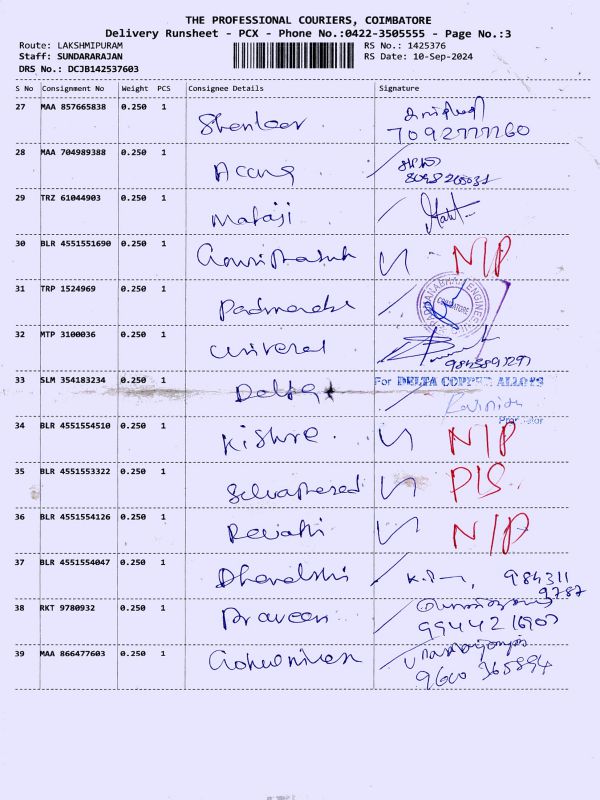 THE PROFESSIONAL COURIERS, COIMBATORE
Delivery Runsheet - PCX - Phone No.:0422-3505555 - Page No.:3
Route: LAKSHMIPURAM RS No.: 1425376
Staff: SUNDARARAJAN RS Date: 10-Sep-2024
DRS No.: DCJB142537603
S No Consignment No Weight PCS Consignee Details Signature
27 MAA 857665838 0.250 1
7092777260
28 MAA 704989388 0.250 1
29 TRZ 61044903 0.250 1 Mataji
30 BLR 4551551690 0.250 1 N/P
31 TRP 1524969 0.250 1
COIMBATORE
32 MTP 3100036 0.250 1 Universal
33 SLM 354183234 0.250 1 Delta For DELTA COPPER ALLOYS
34 BLR 4551554510 0.250 1 Kishre N/P
35 BLR 4551553322 0.250 1 P/S
36 BLR 4551554126 0.250 1 Revathi N/P
37 BLR 4551554047 0.250 1 984311
9787
38 RKT 9780932 0.250 1 Praveen
39 MAA 866477603 0.250 1
9600 365894